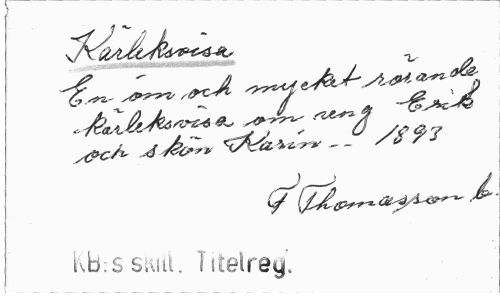 Kärleksvisa
En öm och mycket rörande
kärleksvisa om ung Erik
och skön Karin -- 1893
F Thomasson b.
KB:s skill. Titelreg.